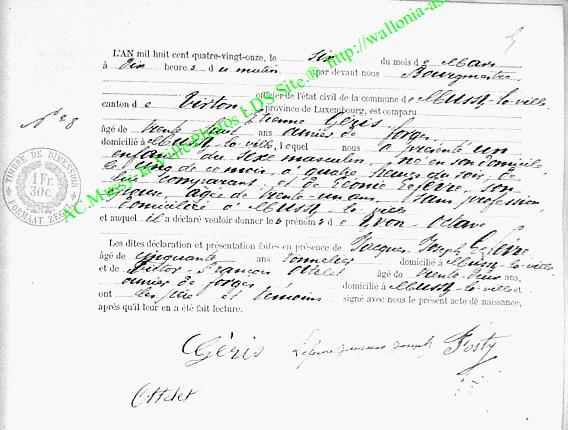 L'AN mil huit cent quatre-vingt-onze, le six du mois de Mars
à dix heures du matin par devant nous Bourgmestre
officier de l'état civil de la commune de Mussy-la-ville
canton de Virton province de Luxembourg, est comparu
Etienne Géris
âgé de trente ans ouvrier de forges
domicilié à Mussy-la-ville, lequel nous a présenté un
enfant du sexe masculin, né en son domicile
le cinq de ce mois, à quatre heures du soir, de
lui comparant, et de Léonie Lefèvre, son
épouse, âgée de trente-un ans, sans profession,
domiciliée à Mussy-la-ville
et auquel il a déclaré vouloir donner les prénoms de Yvon-Octave
Les dites déclaration et présentation faites en présence de Jacques Joseph Lefèvre
âgé de cinquante ans tonnelier domicilié à Mussy-la-ville
et de Victor-François Ottelet âgé de trente-deux ans
ouvrier de forges domicilié à Mussy-la-ville et
ont les père et témoins signé avec nous le présent acte de naissance,
après qu'il leur en a été fait lecture.
Géris Lefevre jacques joseph Posty
Ottelet
N° 8
TIMBRE DE DIMENSION
1 Fr.
30C.
FORMAAT ZEGEL
AC Mussy-la-Ville Photos LDS Site ® http://wallonia-as